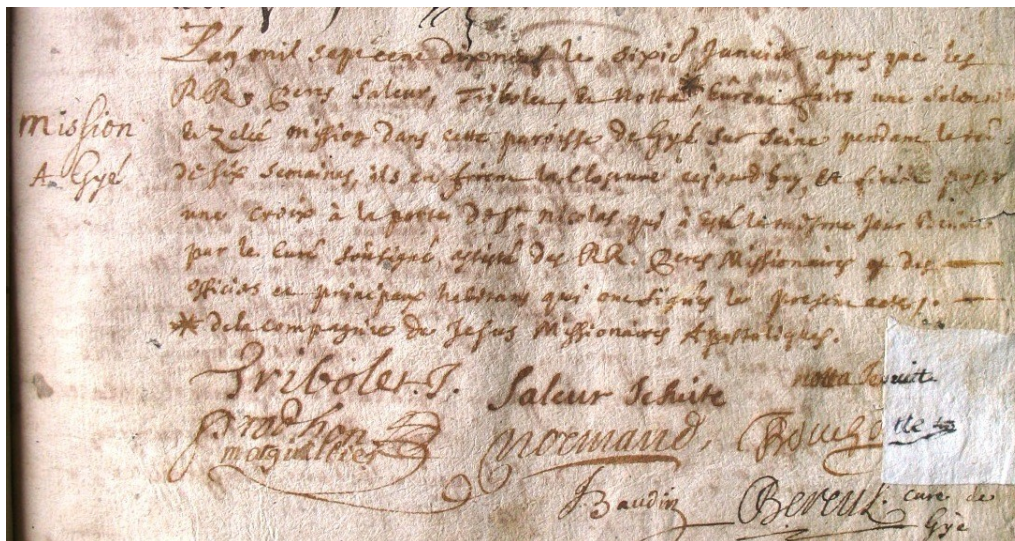 L'an mil sept cent dixneuf le dixie Janvier apres que les
Mission
RR. Peres Saleur, Tribolet, et Notta * eurent faits une solemn
et Zelée mission dans cette paroisse de Gyé sur seine pendant le
A Gyé
de six semaines, ils en firent la Closture aujourdhuy, et firent poser
une croix à la porte de St. Nicolas qui à esté le mesme jour benite
par le Curé soussigné assisté des RR. Peres Missionaires et des
officiers et principaux habitans qui ont signés le present acte.
* de la compagnie de Jesus Missionaires Apostoliques.
Tribolet. J. Saleur Jesuite notta Jesuite
Prodhon
marguillier normand,
J. Baudin Bereux. curé de
Gyé